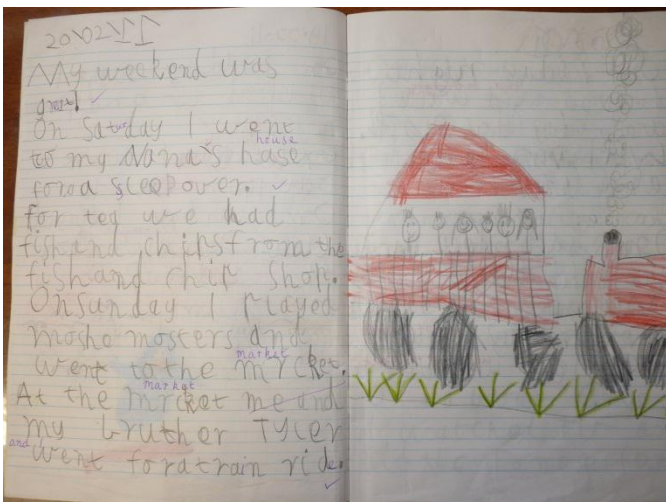 20\02\11
My weekend was
great ✓
On Saturday I went
house
to my Nana's hase
for a sleepover. ✓
for tea we had
fish and chips from the
fish and chip shop.
On Sunday I played
moshe mosters and
market
went to the mrcket.
market
At the mrcket me and
my bruther Tyler
and
went for a train ride.
✓